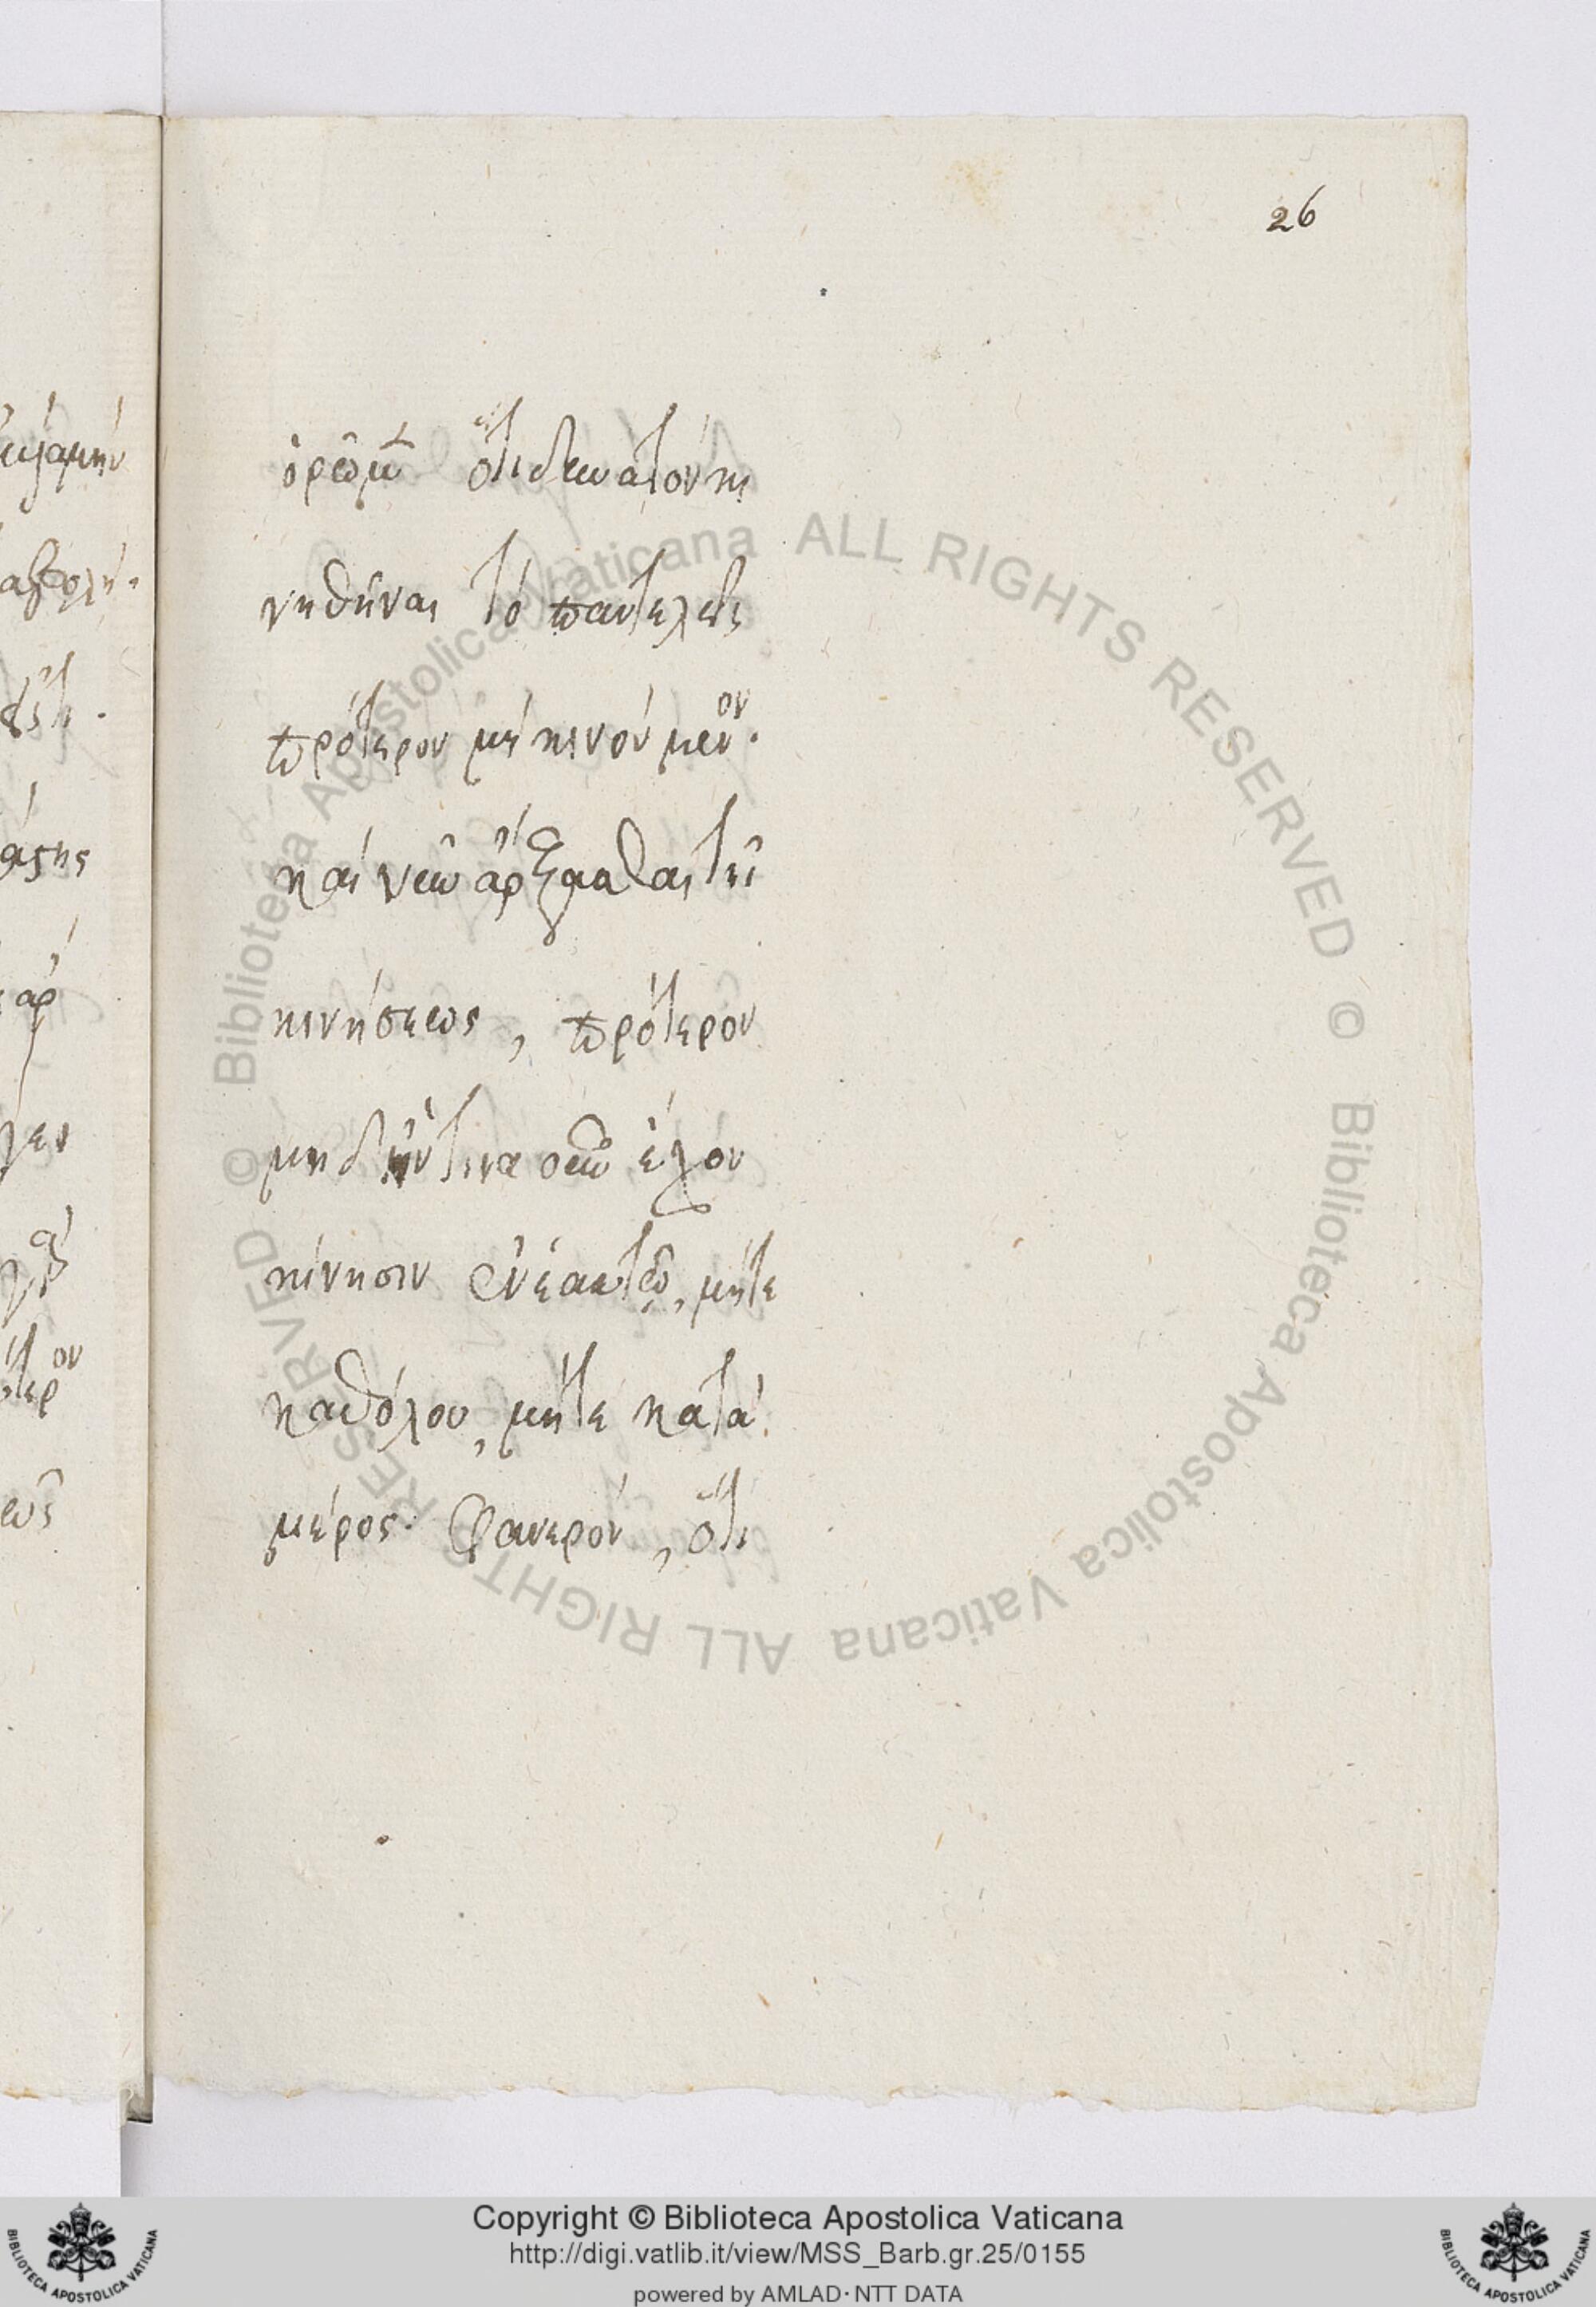 26
ὁρῶμεν ὅτι δυνατόν κι
νηθῆναι τὸ παντελῶς
πρότερον μὴ κινούμενον.
καὶ νῦν ἄρξασθαι τῆς
κινήσεως, πρότερον
μηδήντινα οὖν ἔχον
κίνησιν ἐν ἑαυτῷ, μήτε
καθόλου, μήτε κατὰ
μέρος. φανερόν, ὅτι
Copyright © Biblioteca Apostolica Vaticana
http://digi.vatlib.it/view/MSS_Barb.gr.25/0155
powered by AMLAD · NTT DATA
© Biblioteca Apostolica Vaticana ALL RIGHTS RESERVED © Biblioteca Apostolica Vaticana ALL RIGHTS RESERVED
BIBLIOTECA APOSTOLICA VATICANA
BIBLIOTECA APOSTOLICA VATICANA